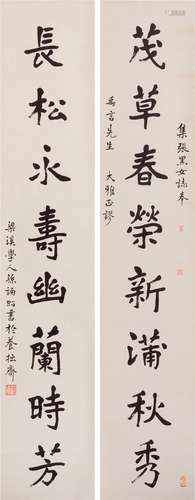 集張黑女誌奉
茂草春榮新蒲秋秀
為言先生 大雅正謬
長松永壽幽蘭時芳
梁溪學人孫揆均書於養拙齋